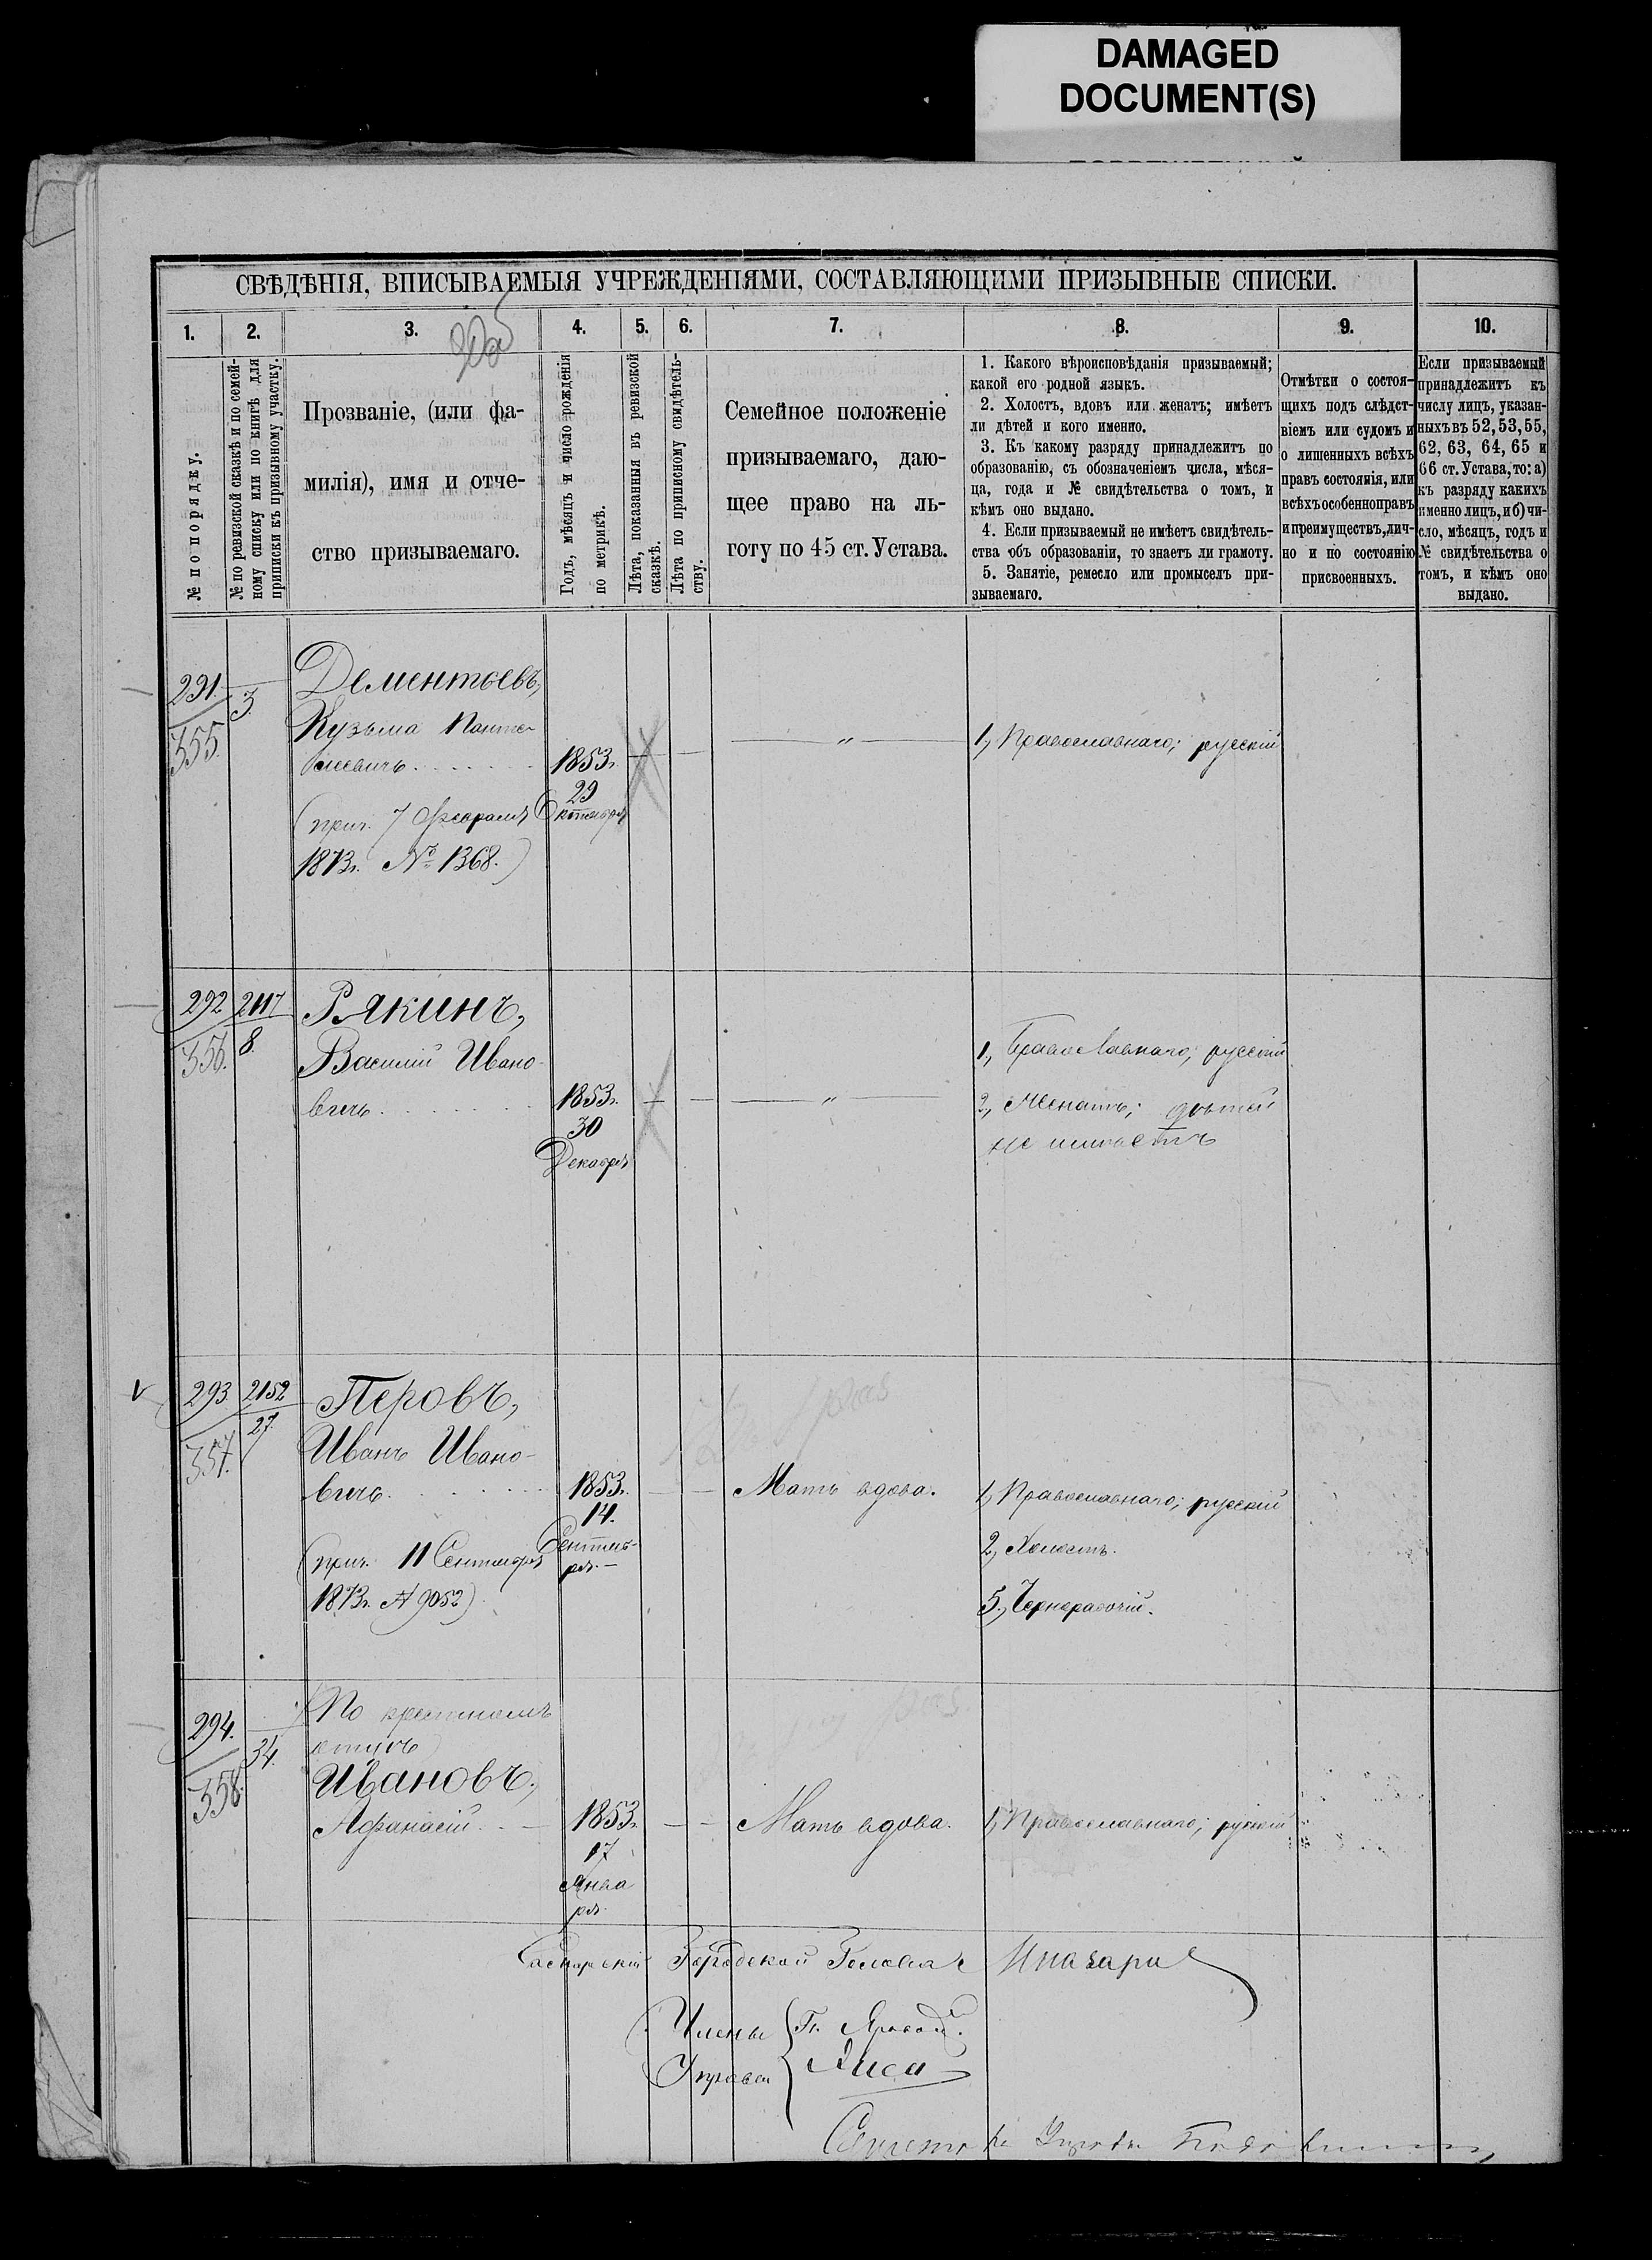 DAMAGED
DOCUMENT(S)
СВѢДѢНІЯ, ВПИСЫВАЕМЫЯ УЧРЕЖДЕНІЯМИ, СОСТАВЛЯЮЩИМИ ПРИЗЫВНЫЕ СПИСКИ.
1. 2. 3. 4. 5. 6. 7. 8. 9. 10.
№ по порядку.
№ по ревизской сказкѣ и по семей-
ному списку или по книгѣ для
приписки къ призывному участку.
Прозваніе, (или фа-
милія), имя и отче-
ство призываемаго.
Годъ, мѣсяцъ и число рожденія
по метрикѣ.
Лѣта, показанныя въ ревизской
сказкѣ.
Лѣта по приписному свидѣтель-
ству.
Семейное положеніе
призываемаго, даю-
щее право на ль-
готу по 45 ст. Устава.
1. Какого вѣроисповѣданія призываемый;
какой его родной языкъ.
2. Холостъ, вдовъ или женатъ; имѣетъ
ли дѣтей и кого именно.
3. Къ какому разряду принадлежитъ по
образованію, съ обозначеніемъ числа, мѣся-
ца, года и № свидѣтельства о томъ, и
кѣмъ оно выдано.
4. Если призываемый не имѣетъ свидѣтель-
ства объ образованіи, то знаетъ ли грамоту.
5. Занятіе, ремесло или промыселъ при-
зываемаго.
Отмѣтки о состоя-
щихъ подъ слѣдст-
віемъ или судомъ и
о лишенныхъ всѣхъ
правъ состоянія, или
всѣхъ особенно правъ
и преимуществъ, лич-
но и по состоянію
присвоенныхъ.
Если призываемый
принадлежитъ къ
числу лицъ, указан-
ныхъ въ 52, 53, 55,
62, 63, 64, 65 и
66 ст. Устава, то: а)
къ разряду какихъ
именно лицъ, и б) чи-
сло, мѣсяцъ, годъ и
№ свидѣтельства о
томъ, и кѣмъ оно
выдано.
291. 3. Дементьевъ,
355. Кузьма Панте-
леевичъ 1853г. — — — " — 1, Православнаго; русскій
29
(прич. 7 Февраля Октября
1873г. № 1368.)
292 2117 Рякинъ,
356. 8. Василій Ивано-
вичъ 1853г. — — — " — 1, Православнаго; русскій
30 2, Женатъ; дѣтей
Декабря не имѣетъ
293 2152 Перовъ,
357. 27. Иванъ Ивано-
вичъ 1853г. — — Мать вдова. 1, Православнаго; русскій
14. 2, Холостъ.
(прич. 11 Сентября Сентяб-
ря.
1873г. № 9052) 5, Чернорабочій.
294. 34. По крестному
отцу
358. Ивановъ,
Афанасій 1853г. — — Мать вдова. 1, Православнаго; русскій
17
Янва
ря.
Городской Голова
Члены
Управы